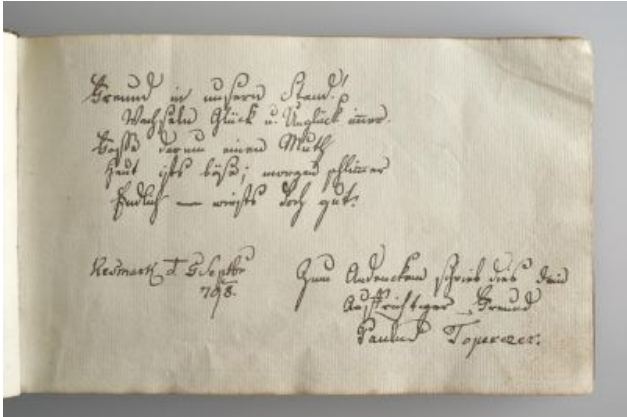 Freund in unsern Stand!
Wechseln Glück u. Unglück im̅er.
Fasse darum einen Muth
Heut ists böse; morgen schlim̅er
Endlich — doch gut.
Kesmark d. 6 Septbr
798.
Zum Andencken schrieb dies Dein
Aufrichtiger Freund
Toperczer.